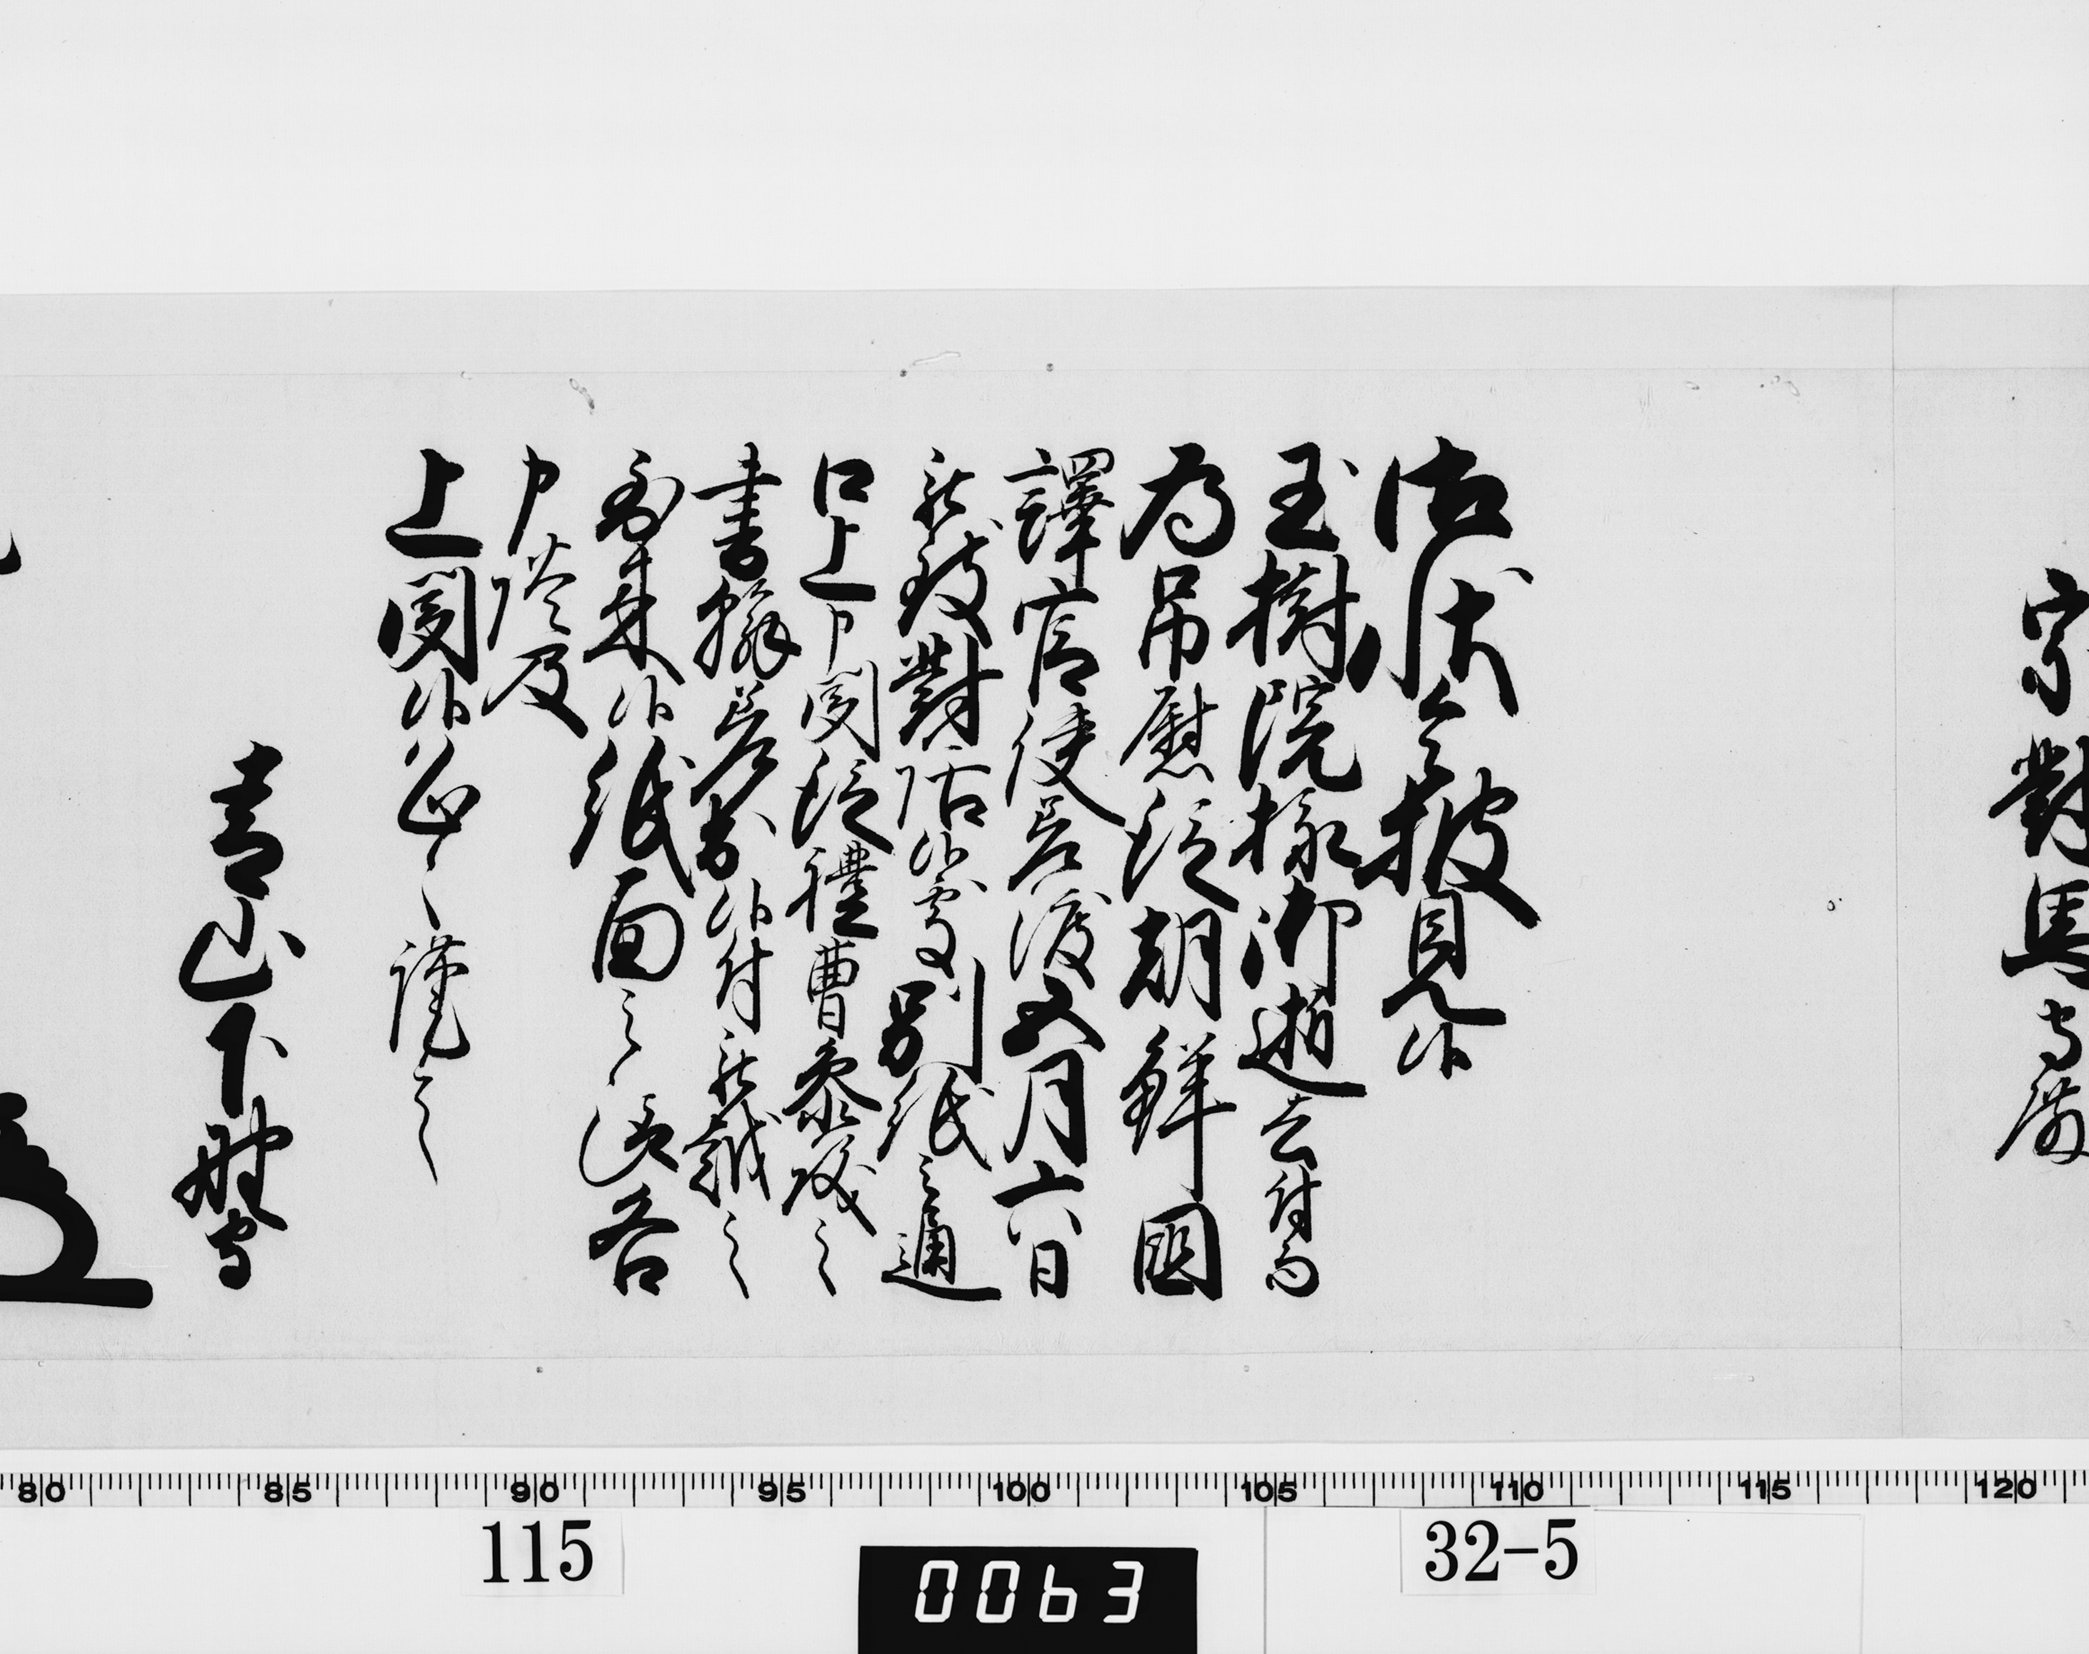 宗對馬守殿
御状令披見候
玉樹院様御逝去付而
為吊慰従朝鮮國
譯官使差渡五月六日
被致對話候處別紙之通
口上申聞従禮曹参議之
書翰差出候付被越之
到来候紙面之趣各
申談及
上聞候恐々謹言
青山下野守
80 85 90 95 100 105 110 115 120
115
0063
32-5